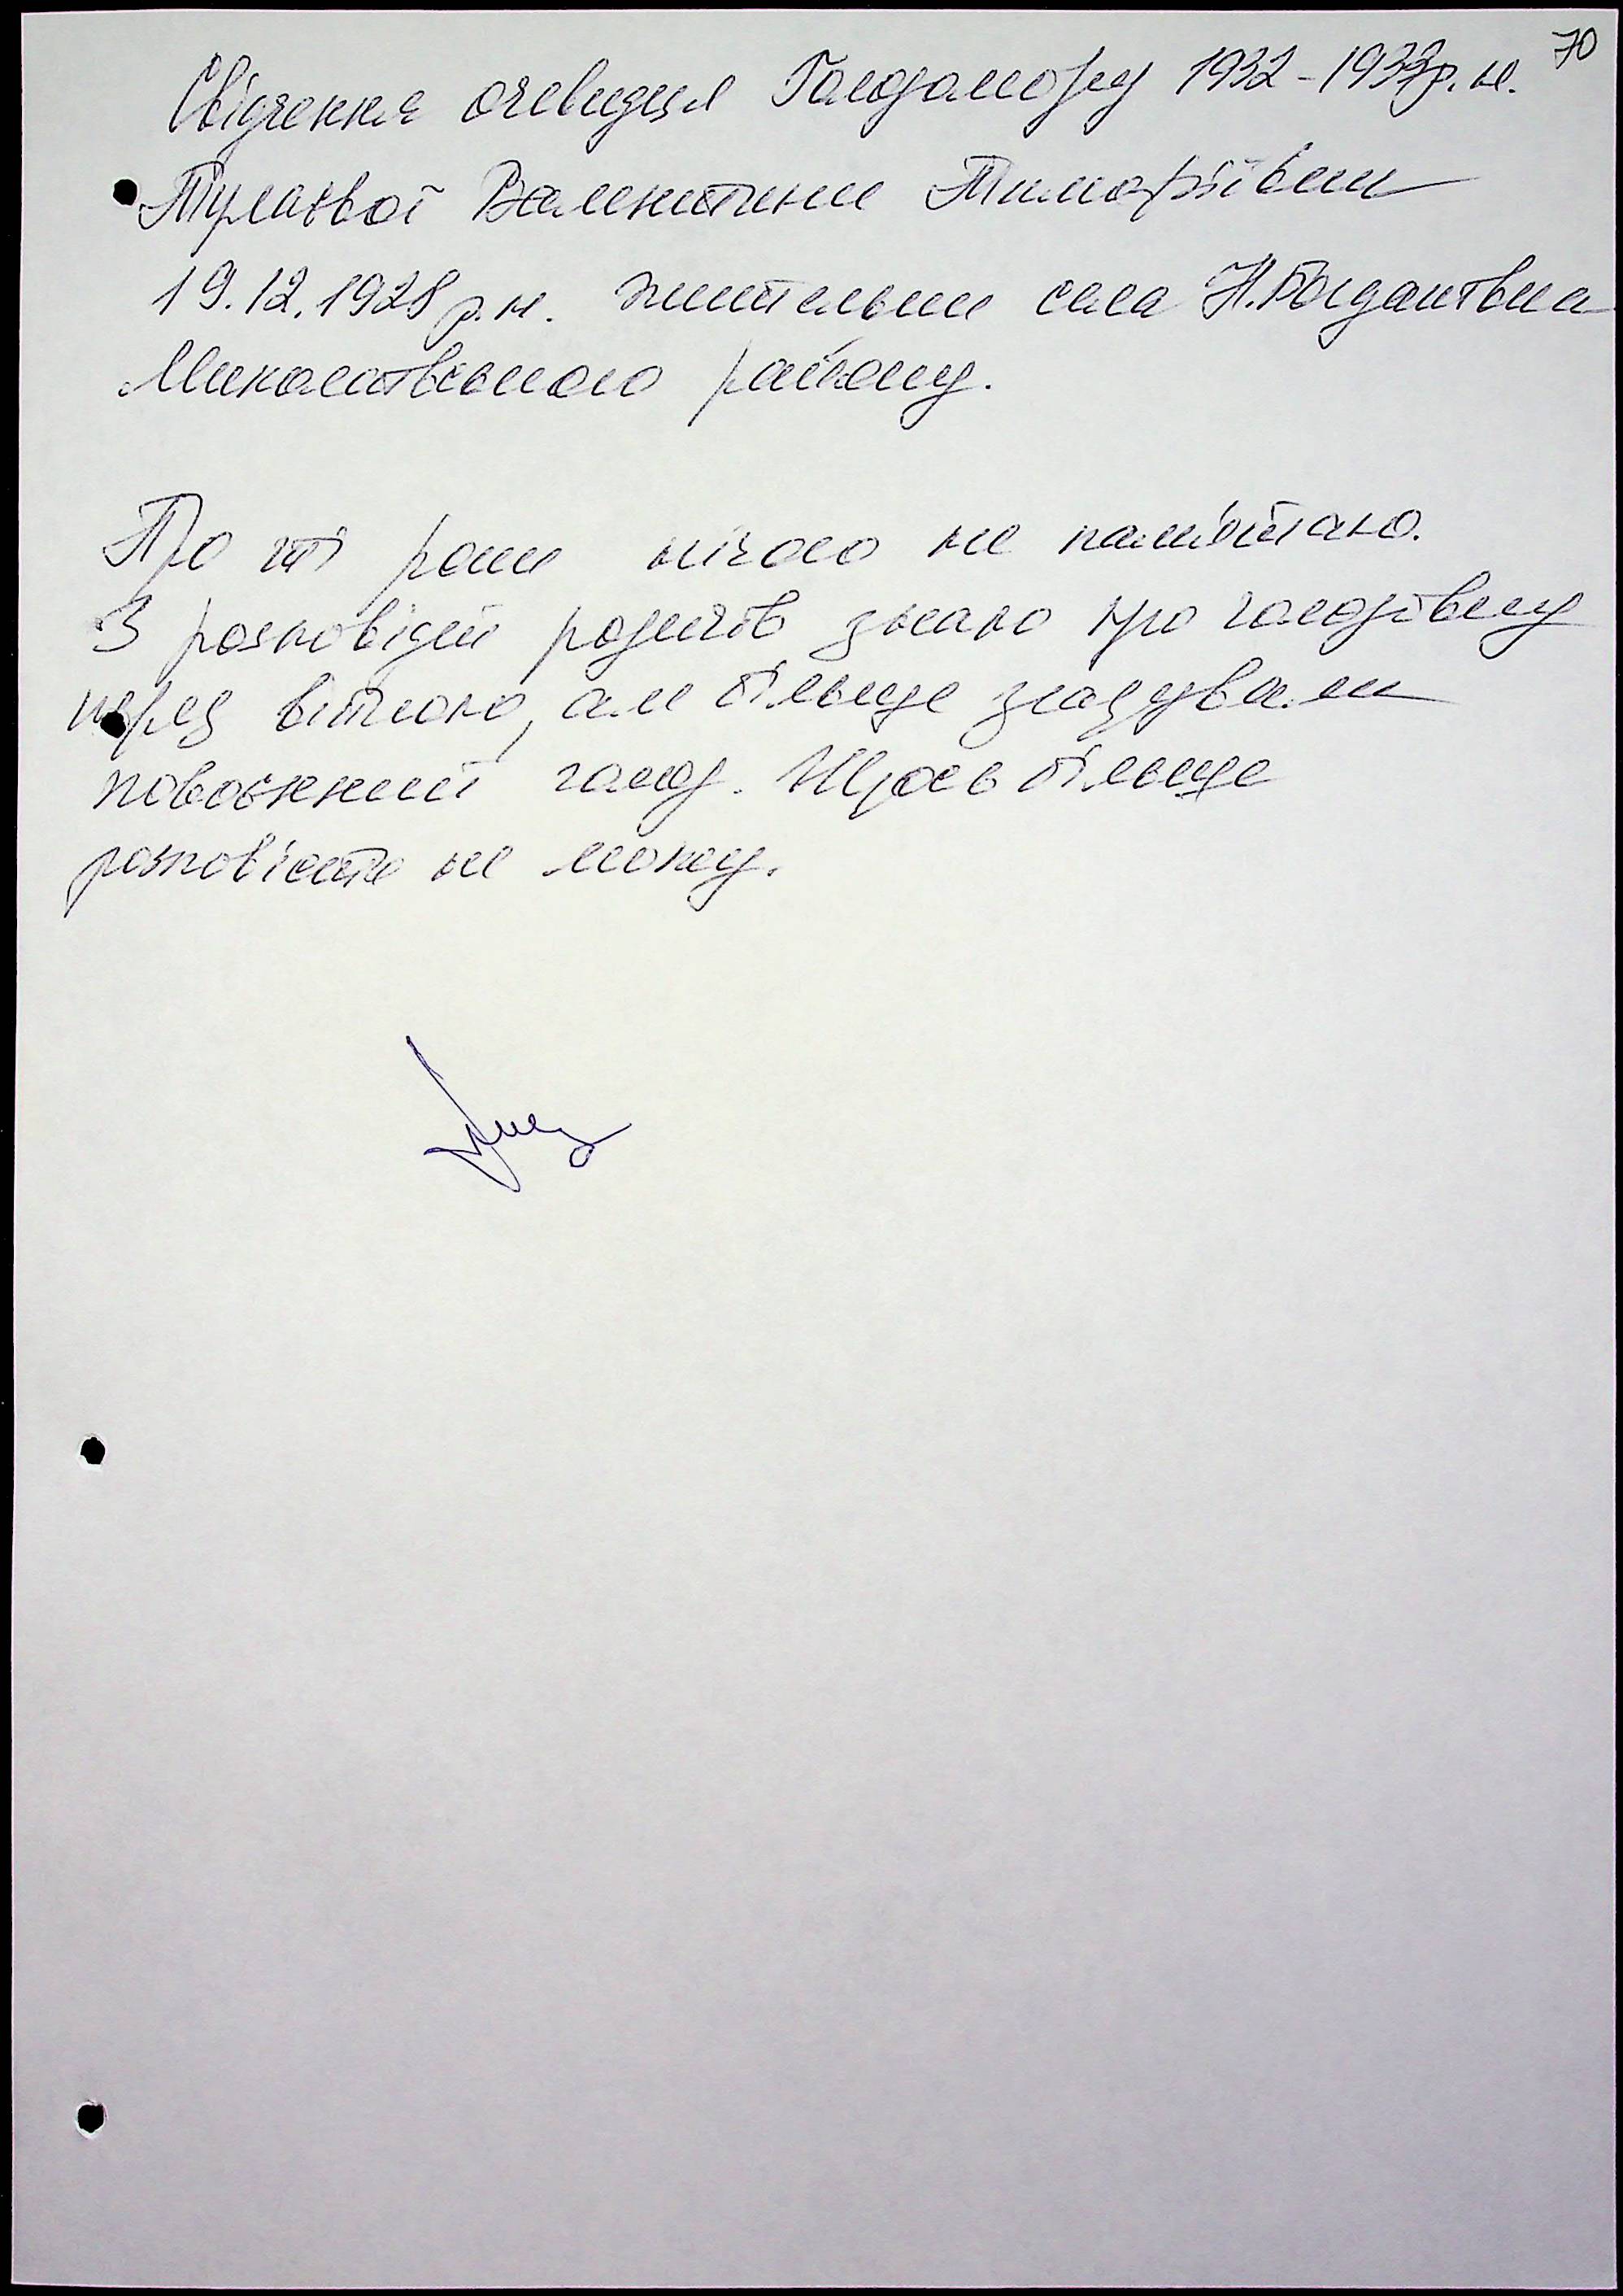 70
Свідчення очевидця Голодомору 1932-1933р.н.
Валентини Тимофіївни
19.12.1928 р.н. жительки села Н.Богданівка
Миколаївського району.
Про ті роки нічого не пам'ятаю.
З розповідей родичів знаю про голодівку
перед війною, але більше згадували
повоєнний голод. Щось більше
розповісти не можу.